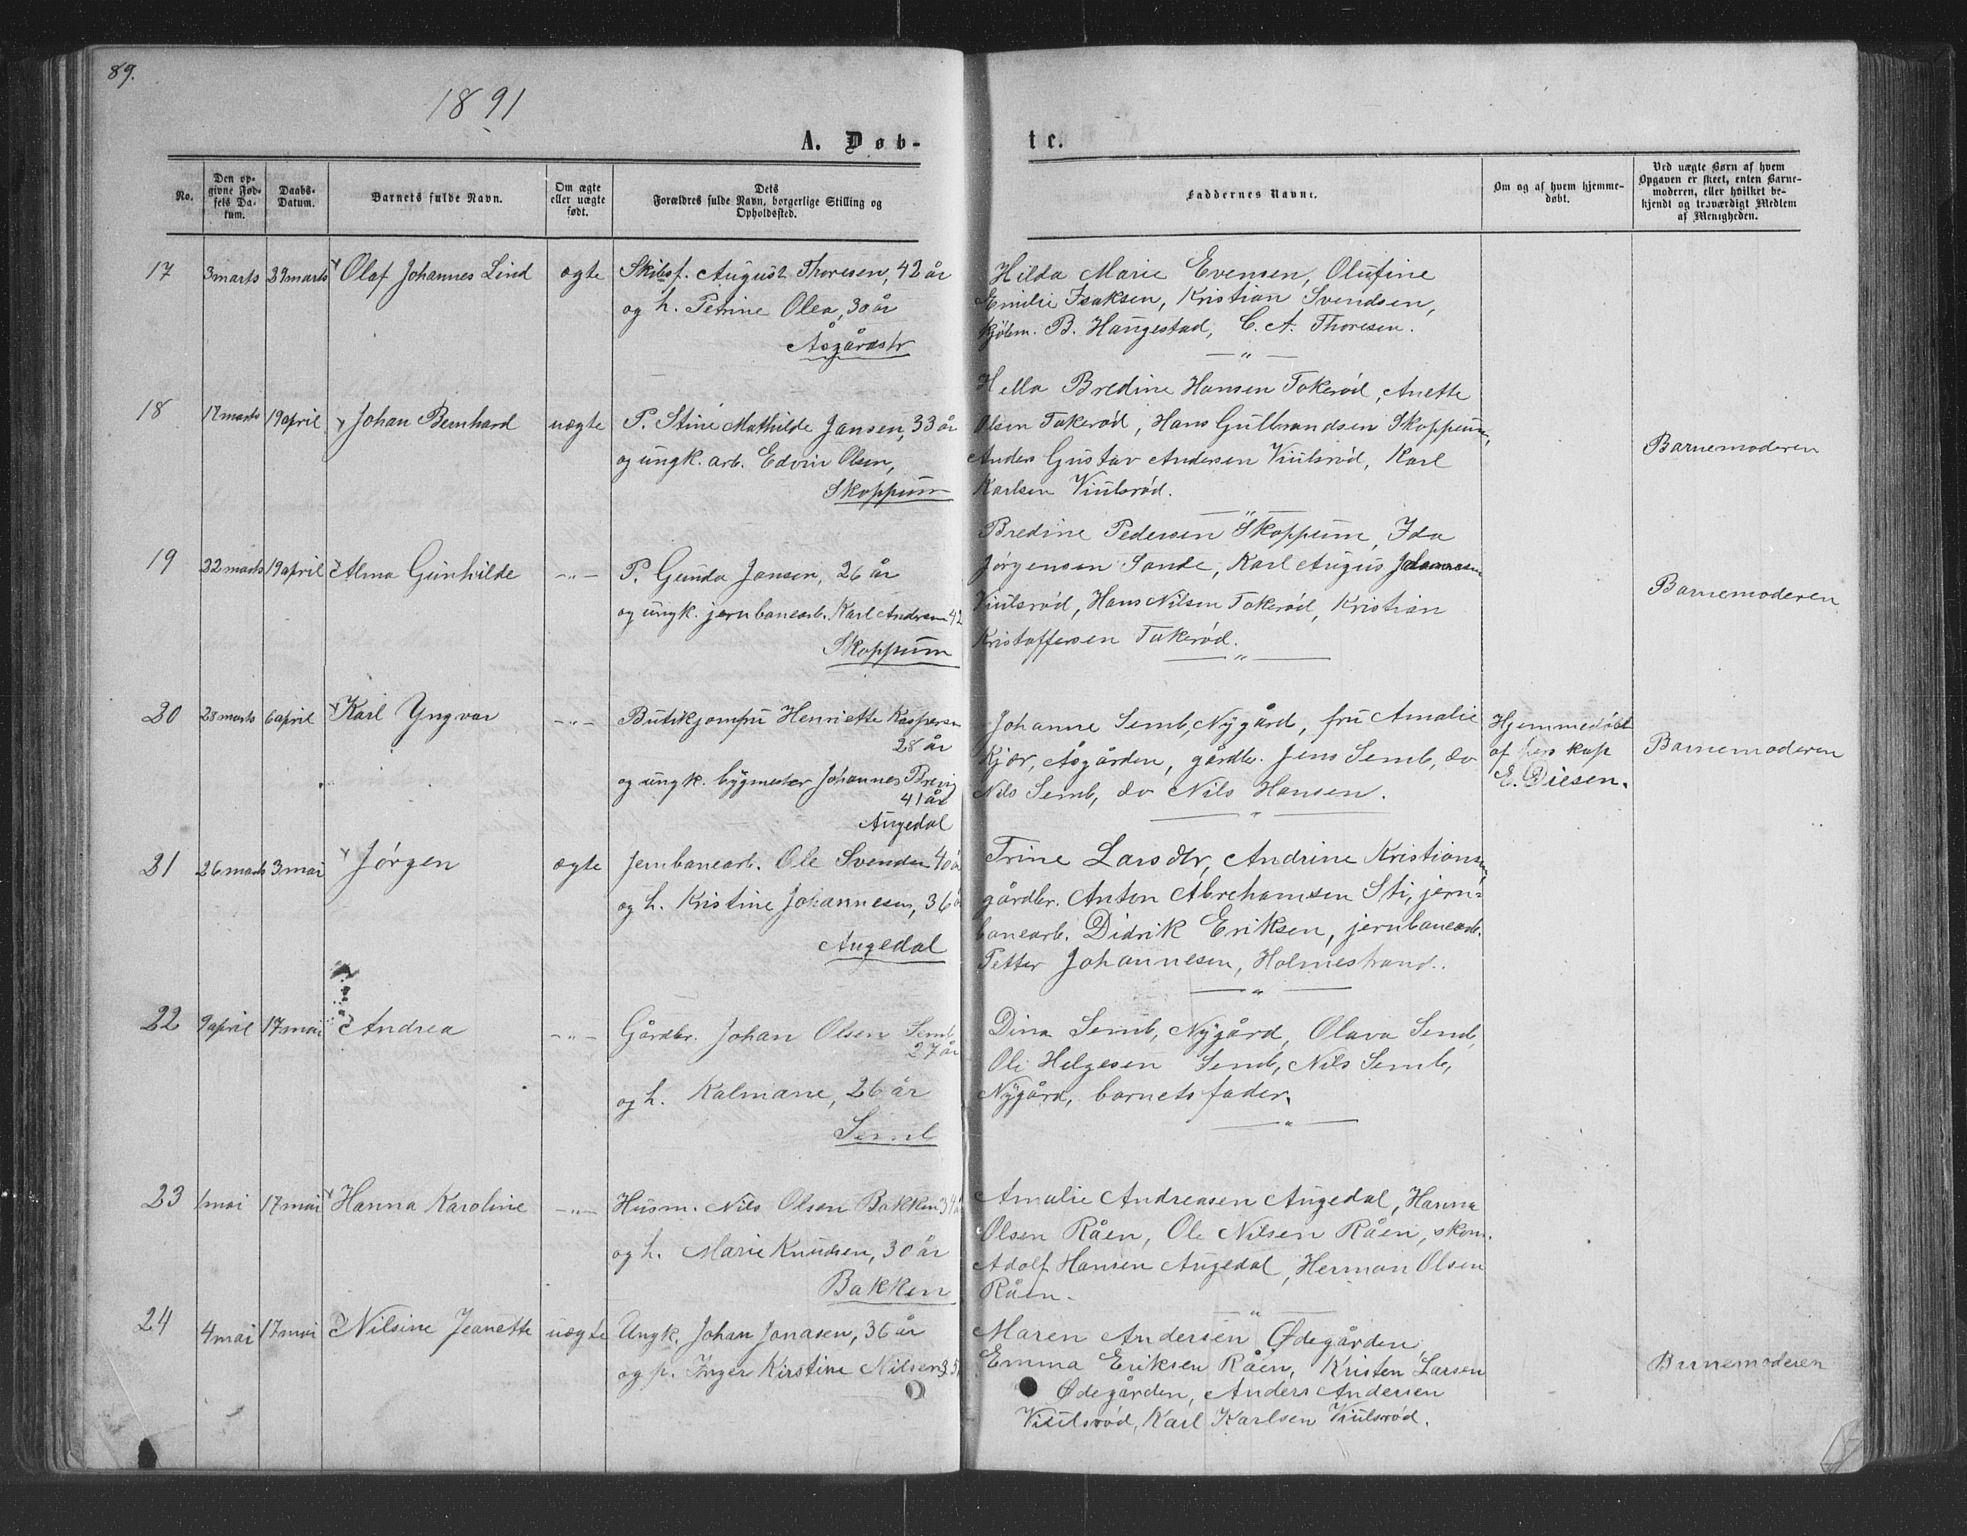 89.
1891
A. Døb-
te.
No.
Den op-
givne Fød-
sels Da-
tum.
Daabs-
Datum.
Barnets fulde Navn.
Om ægte
eller uægte
født.
Dets
Forældres fulde Navn, borgerlige Stilling og
Opholdsted.
Faddernes Navne.
Om og af hvem hjemme-
døbt.
Ved uægte Børn af hvem
Opgaven er skeet, enten Barne-
moderen, eller hvilket be-
kjendt og troværdigt Medlem
af Menigheden.
17 3 marts 29 marts Olaf Johannes Lind ægte Skibsf. August Thoresen, 42 år
og h. Petrine Olea, 30 år
Åsgårdstr
Hilda Marie Evensen, Olufine
Emilie Isaksen, Kristian Svendsen,
kjøbm. B. Haugestad, C. A. Thoresen.
18 17 marts 19 april Johan Bernhard uægte P. Stine Mathilde Jansen, 33 år
og ungk. arb. Edvin Olsen,
Skoppum
Hella Bredine Hansen Takerød, Anette
Olsen Takerød, Hans Gulbrandsen Skoppum,
Anders Gustav Andersen Viulsrød, Karl
Karlsen Viulsrød.
Barnemoderen
19 22 marts 19 april Alma Gunhilde -„- P. Gunda Jansen, 26 år
og ungk. jernbanearb. Karl Andersen 42
Skoppum
Bredine Pedersen Skoppum, Ida
Jørgensen Sande, Karl Augus Johannesen
Viulsrød, Hans Nilsen Takerød, Kristian
Kristoffersen Takerød.
Barnemoderen
20 28 marts 6 april Karl Yngvar -„- Butikjomfru Henriette Kaspersen
28 år
og ungk. bygmester Johannes Brevig
41 år
Augedal
Johanne Semb, Nygård, fru Amalie
Kjær, Åsgården, gårdbr. Jens Semb, do
Nils Semb, do Nils Hansen.
Hjemmedøbt
af kap
E. Diesen.
Barnemoderen
21 26 marts 3 mai Jørgen ægte Jernbanearb. Ole Svendsen 40 år
og h. Kristine Johannesen, 36 å
Augedal
Trine Larsdtr, Andrine Kristiansen
gårdbr. Anton Abrehamsen Sti, jern-
banearb. Didrik Eriksen, jernbanearb.
Petter Johannesen, Holmestrand.
22 9 april 17 mai Andrea -„- Gårdbr. Johan Olsen Semb
27 år
og h. Kalmane, 26 år
Semb
Dina Semb, Nygård, Olava Semb,
Ole Helgesen Semb, Nils Semb,
Nygård, barnets fader.
23 1 mai 17 mai Hanna Karoline -„- Husm. Nils Olsen Bakken 34 å
og h. Marie Knudsen, 30 år
Bakken
Amalie Andreasen Augedal, Hanna
Olsen Råen, Ole Nilsen Råen, skom.
Adolf Hansen Augedal, Herman Olsen
Råen.
24 4 mai 17 mai Nilsine Jeanette uægte Ungk. Johan Jonasen, 36 år
og p. Inger Kirstine Nilsen, 35
Maren Andersen Ødegården,
Emma Eriksen Råen, Kristen Larsen
Ødegården, Anders Andersen
Viulsrød, Karl Karlsen Viulsrød.
Barnemoderen